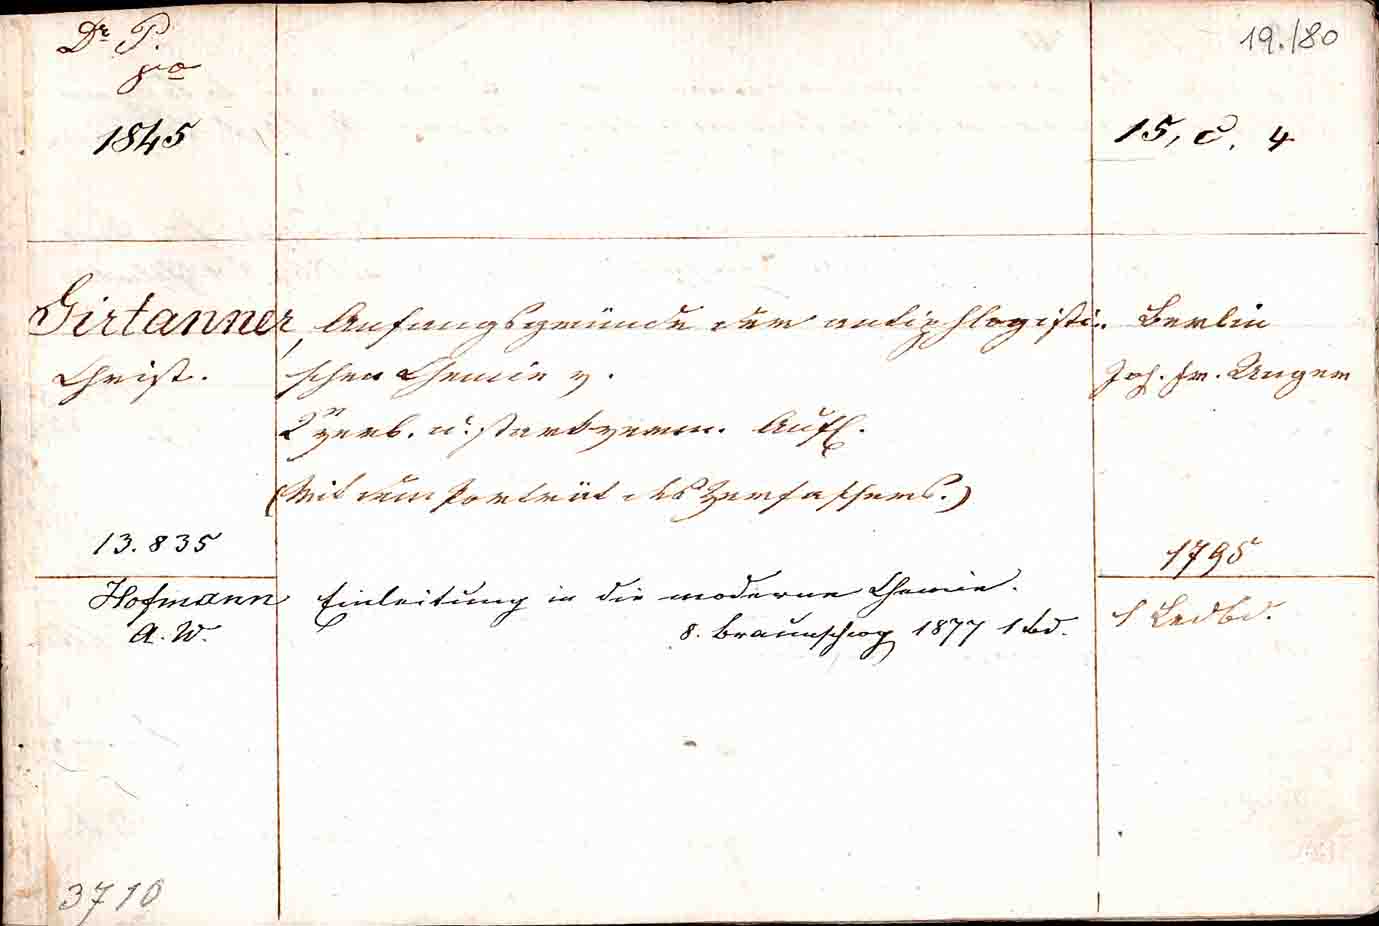 Dr P.
19./80
8o
1845
15, C. 4
Girtanner, Anfangsgründe der antiphlogisti- Berlin
Christ. schen Chemie Joh. Fr. Unger
2 verb. u. stark verm. Aufl.
(Mit dem Porträt des Verfassers.)
13.835 1795
Hofmann Einleitung in die moderne Chemie. 1 Ledbd.
A. W. 8. Braunschwg 1877 1 Bd.
3710